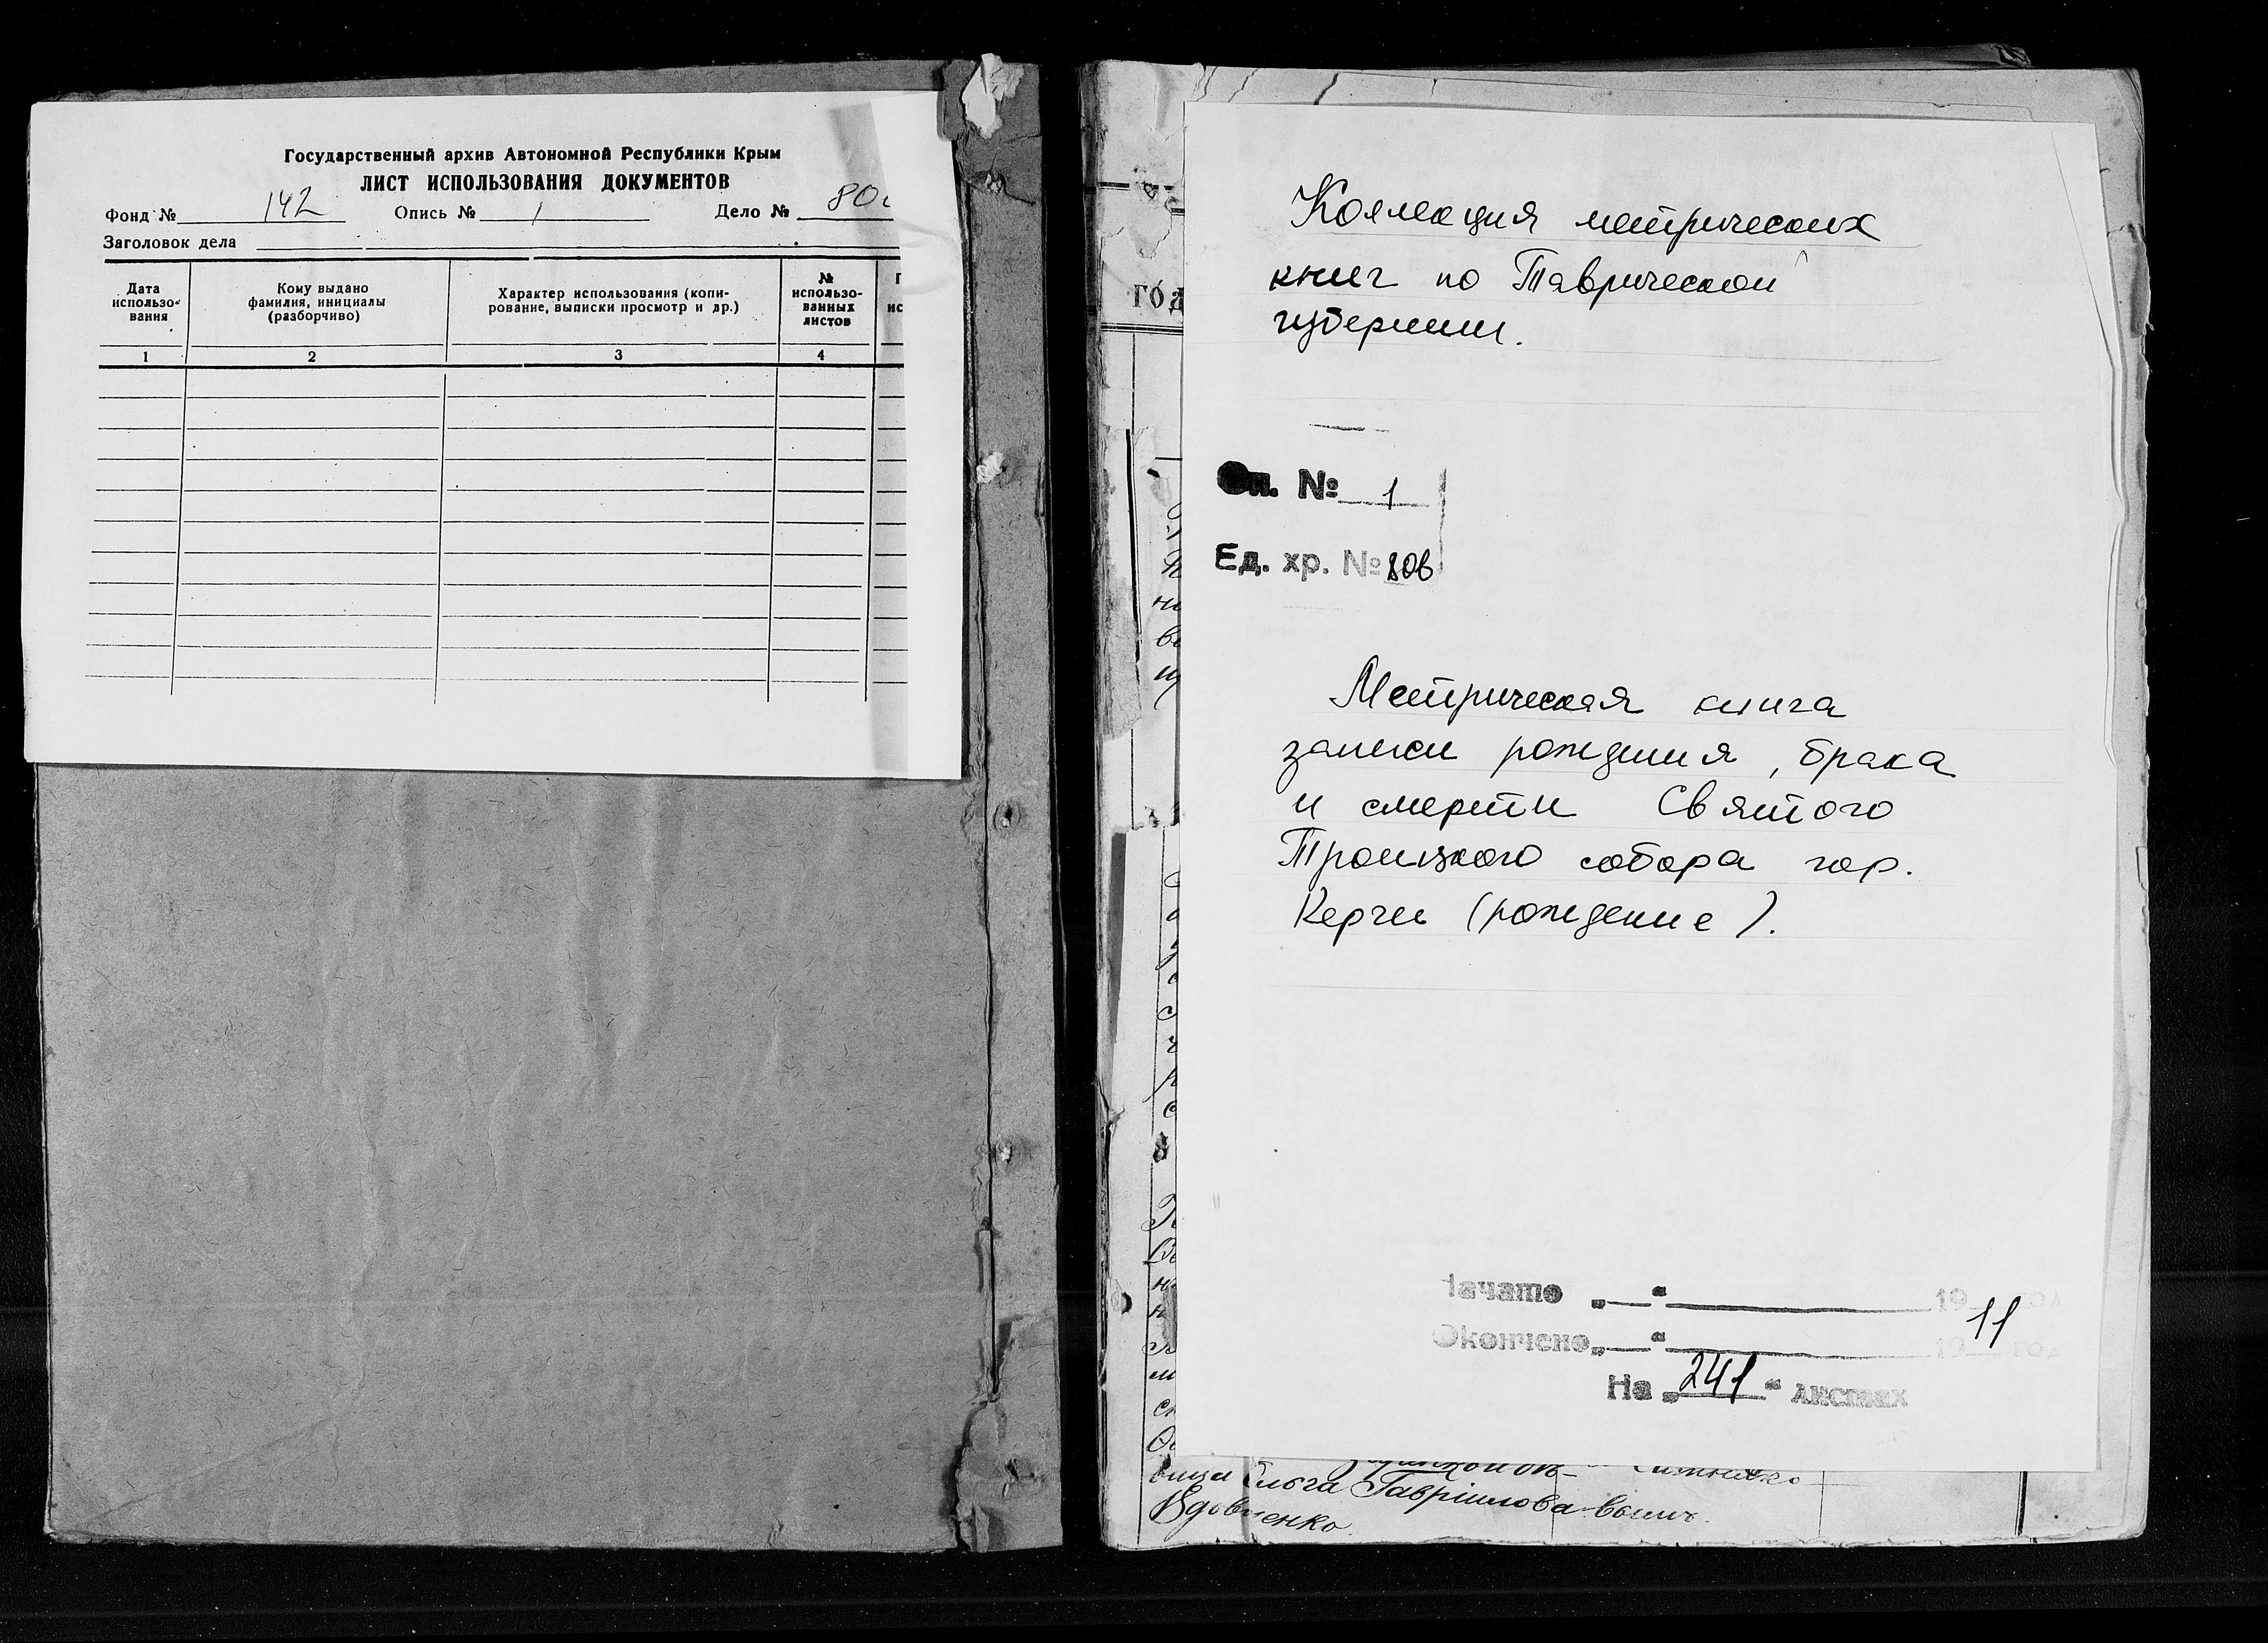 Государственный архив Автономной Республики Крым
ЛИСТ ИСПОЛЬЗОВАНИЯ ДОКУМЕНТОВ
Фонд № 142 Опись № 1 Дело № 80
Заголовок дела
Дата использо-вания
Кому выдано фамилия, инициалы (разборчиво)
Характер использования (копи-рование, выписки просмотр и др.)
№ использо-ванных листов
1 2 3 4
Коллекция метрических
книг по Таврической
губернии.
Оп. № 1
Ед. хр. № 806
Метрическая книга
записи рождения, брака
и смерти Святого
Троицкого собора гор.
Керчи (рождение).
Начато „ “ 19
11
Окончено „ “ 19 год
На „241“ листах
ГОД
Ольга Гавріилова
Вдовиенко